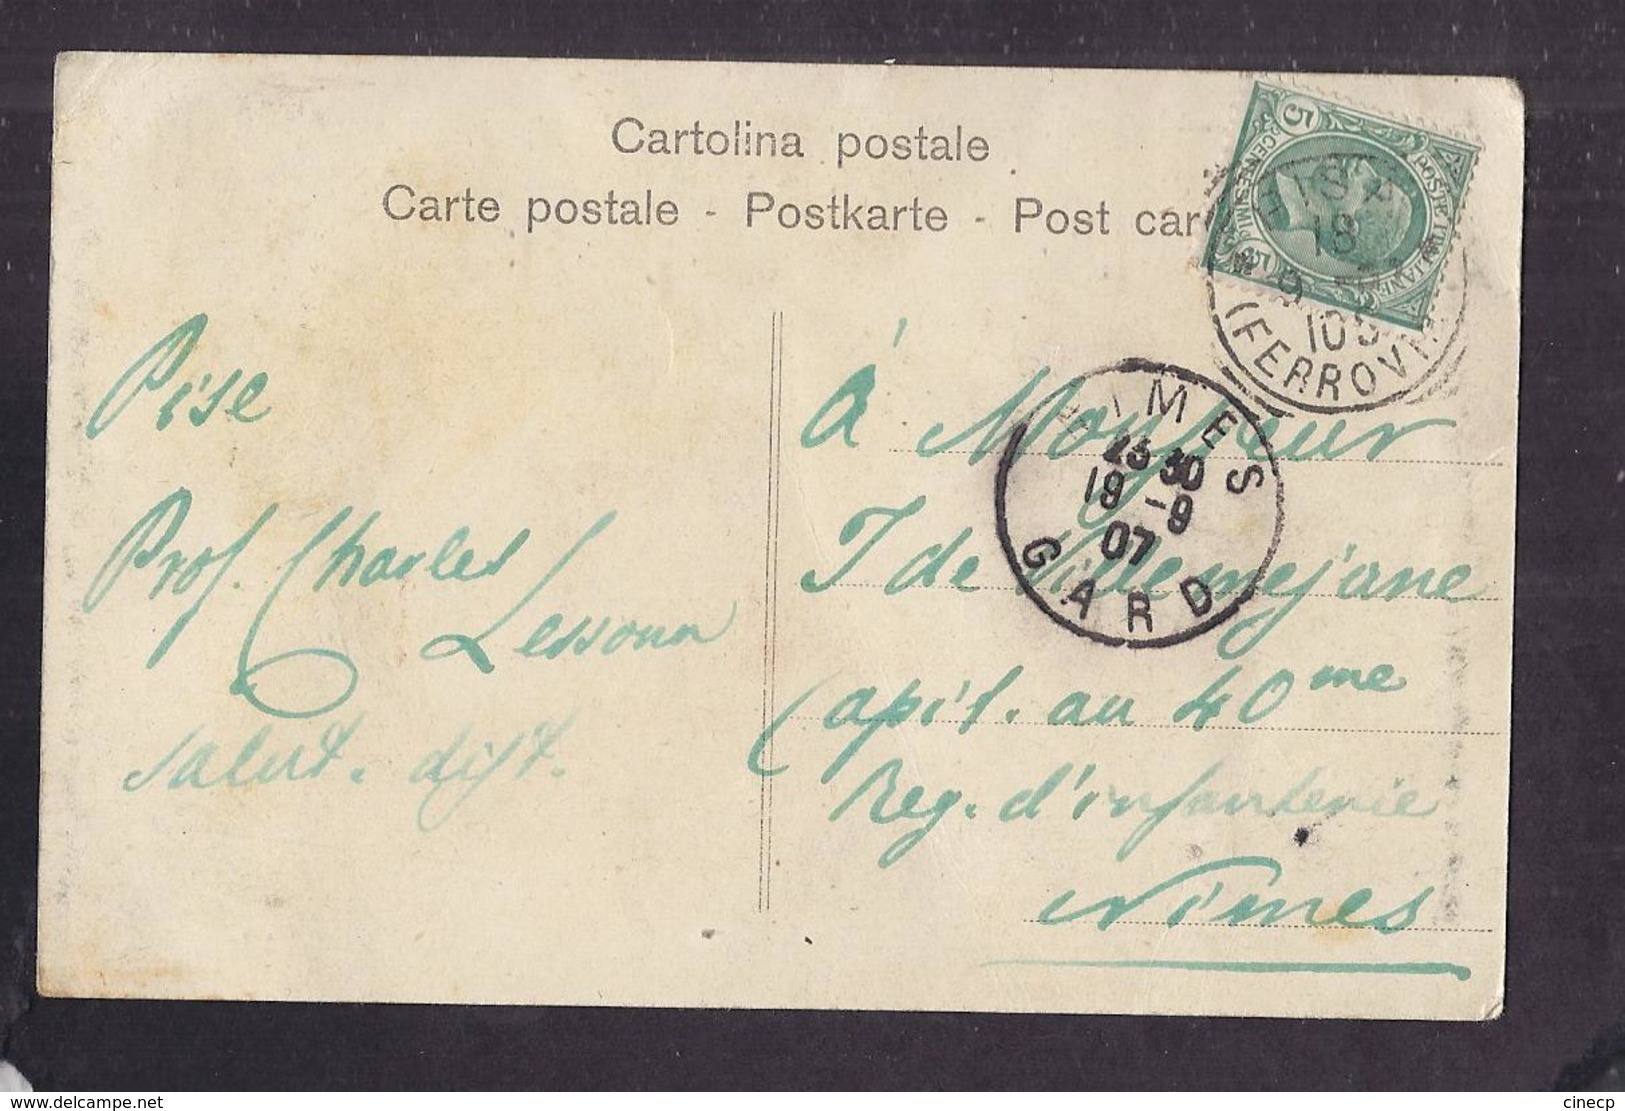 Cartolina postale
Carte postale - Postkarte - Post car
5
CENTESIMI
POSTE ITALIANE
PISA
18
(FERROVI
NIMES
23 30
19 - 9
07
GARD
Pise
Prof. Charles
Lessona
salut. dist.
à Monsieur
J de Villemejane
Capit. au 40me
Reg. d'infanterie
Nimes
www.delcampe.net
cinecp